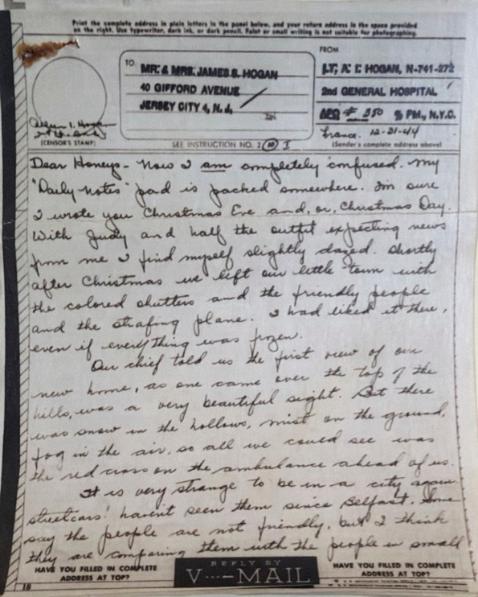 Print the complete address in plain letters in the panel below, and your return address in the space provided
on the right. Use typewriter, dark ink, or dark pencil. Faint or small writing is not suitable for photographing.
TO:
MR. & MRS. JAMES S. HOGAN
40 GIFFORD AVENUE
JERSEY CITY 4, N.J.
FROM
LT. A. I. HOGAN, N-741-272
2nd GENERAL HOSPITAL
APO # 350 % PM., N.Y.C.
France. 12-31-44
(CENSOR'S STAMP)
SEE INSTRUCTION NO. 2
(Sender's complete address above)
Dear Honeys - Now I am completely confused. My
"Daily Notes" pad is packed somewhere. I'm sure
I wrote you Christmas Eve and, or, Christmas Day.
With Judy and half the outfit expecting news
from me I find myself slightly dazed. Shortly
after Christmas we left our little town with
the colored shutters and the friendly people
and the strafing plane. I had liked it there,
even if everything was frozen.
Our chief told us the first view of our
new home, as one came over the top of the
hills, was a very beautiful sight. But there
was snow in the hollows, mist on the ground,
fog in the air, so all we could see was
the red cross on the ambulance ahead of us.
It is very strange to be in a city again
streetcars! haven't seen them since Belfast. Some
say the people are not friendly, but I think
they are comparing them with the people in small
HAVE YOU FILLED IN COMPLETE
ADDRESS AT TOP?
REPLY BY
V···—MAIL
HAVE YOU FILLED IN COMPLETE
ADDRESS AT TOP?